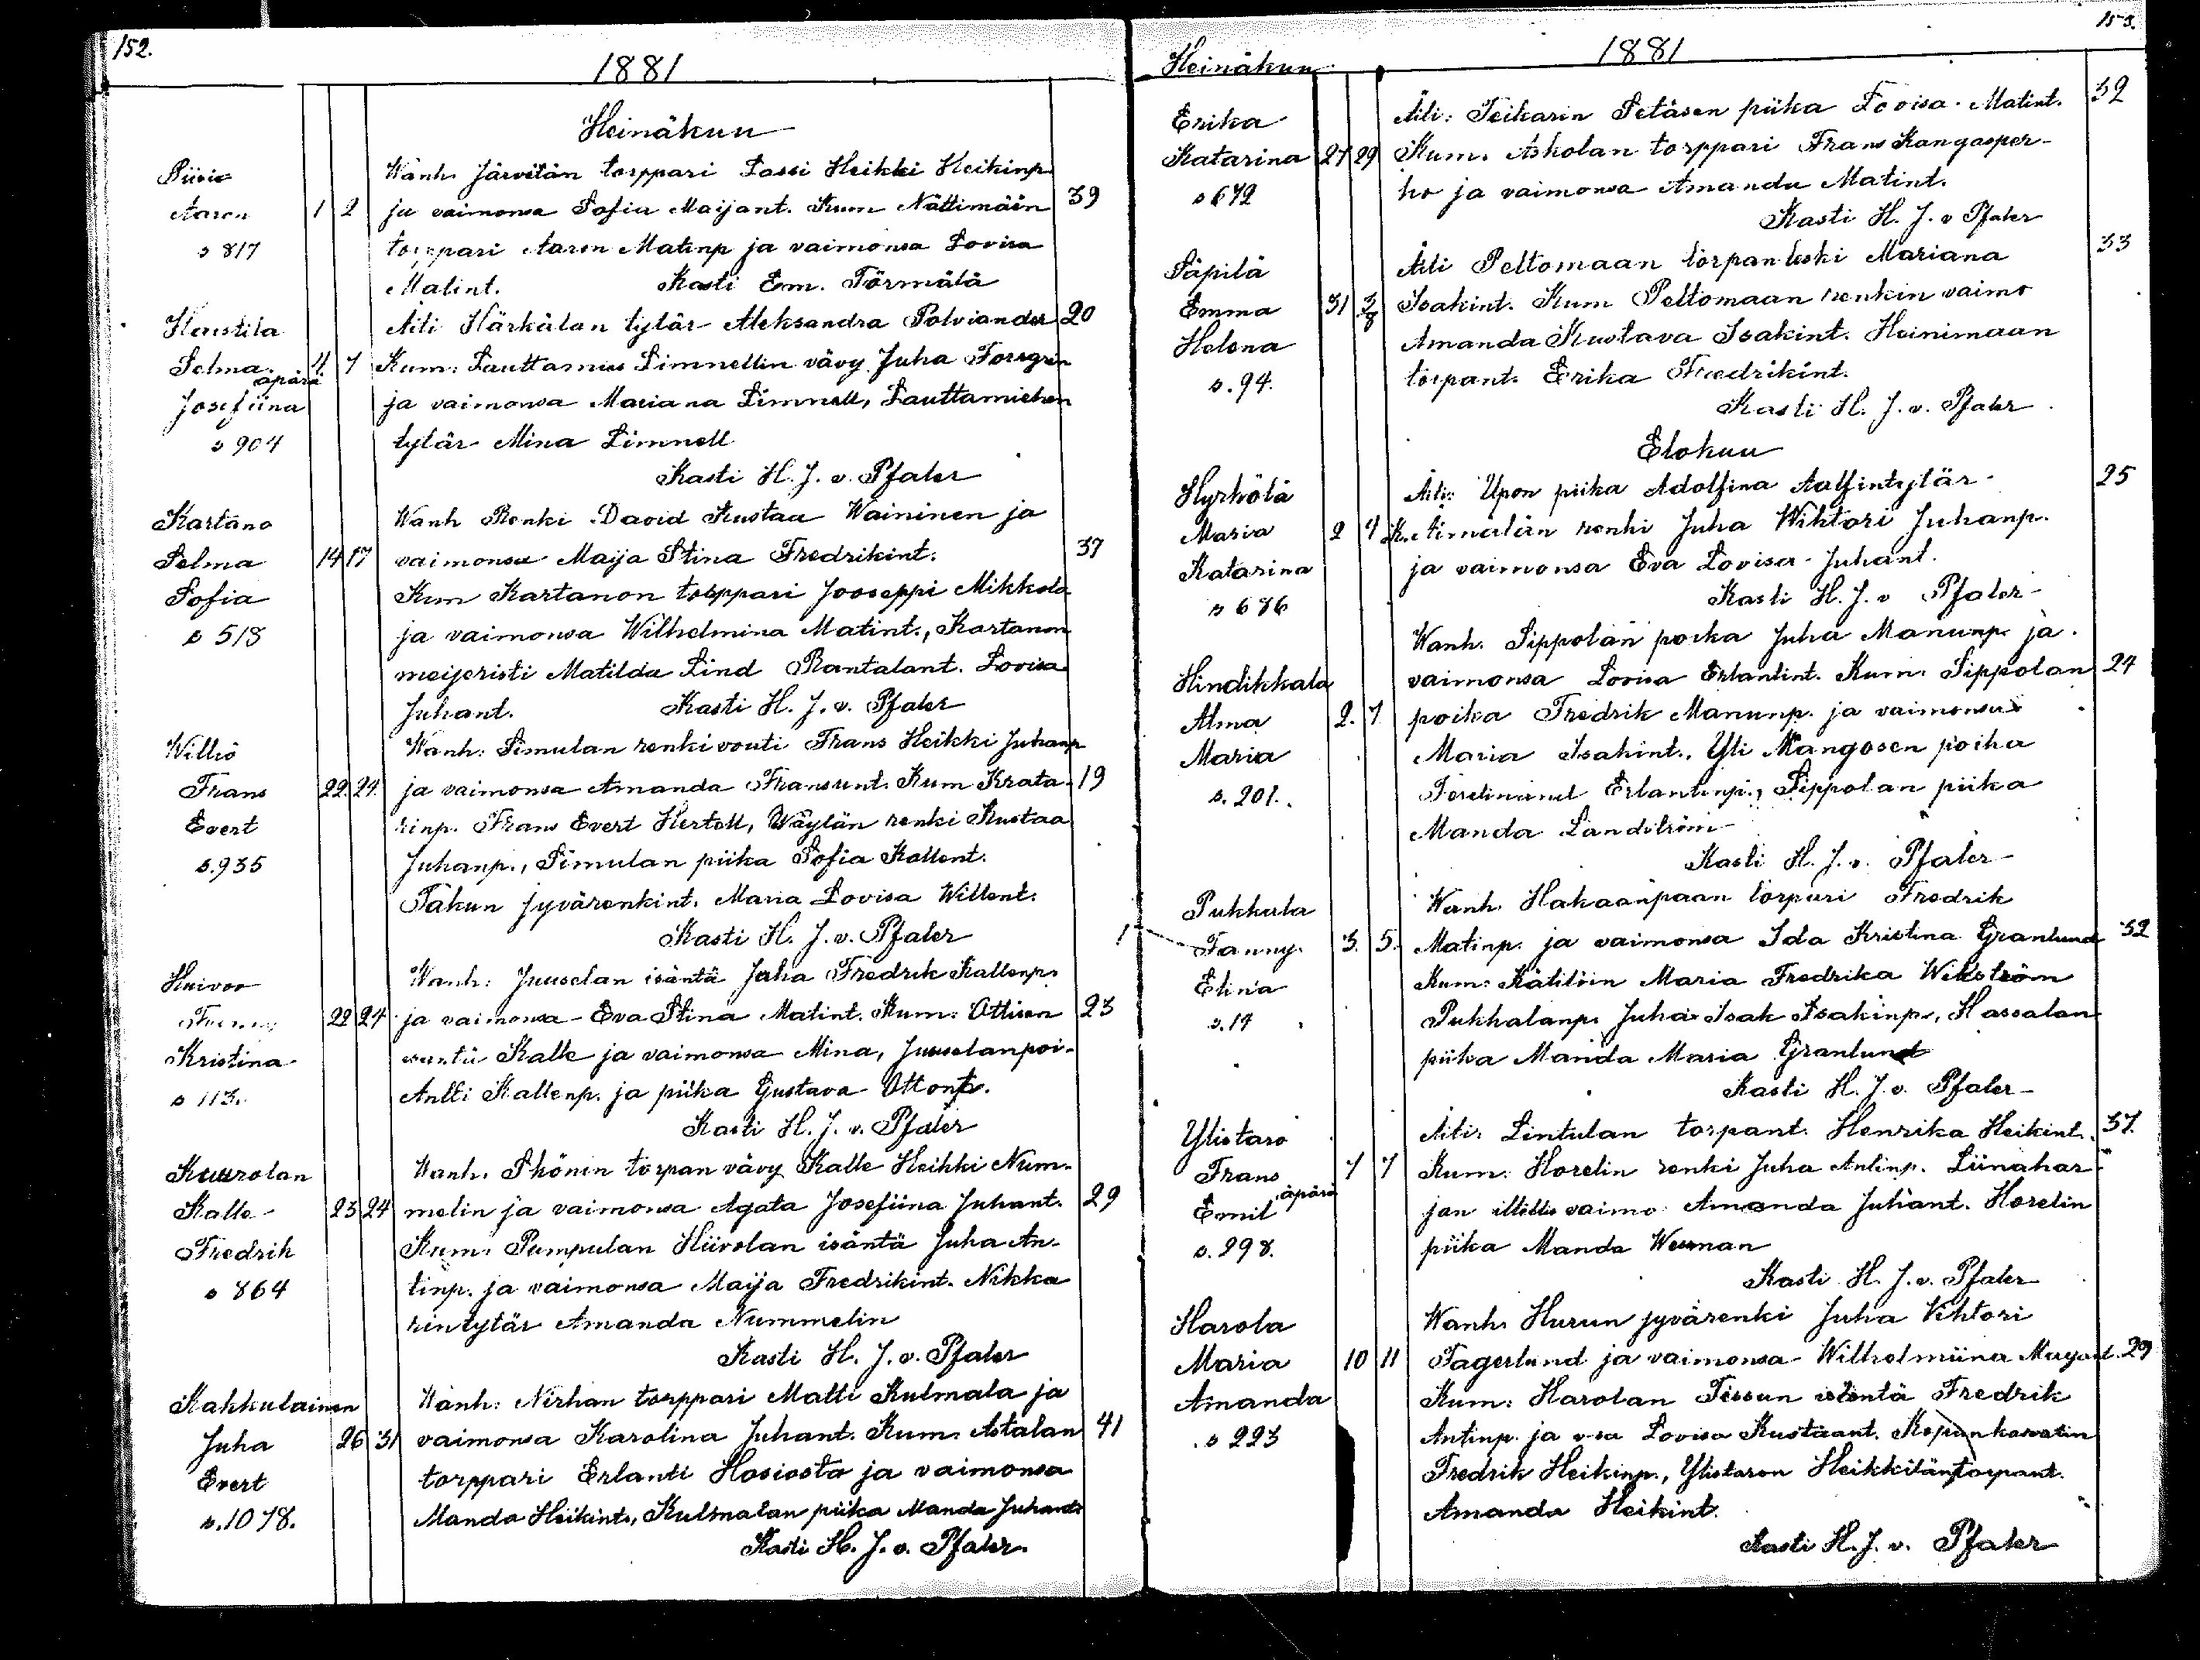 152.
1881
Heinäkuu
Wanh. Järvelän torppari Lassi Heikki Heikinp.
Aaron 1 2 ja vaimonsa Sofia Maijant. Kum Nättimään 39
s 817 torppari Aaron Matinp ja vaimonsa Lovisa
Matint. Kasti Em. Törmälä
Haustila Äiti Härkälan tytär Aleksandra Palviander 20
Selma 4 7 Kum: Lauttamies Limnellin vävy Juha Forsgren
äpärä
Josefiina ja vaimonsa Mariana Limnell, Lauttamiehen
s 904 tytär Mina Limnell
Kasti H. J. v. Pfaler
Kartano Wanh Renki David Kustaa Waininen ja
Selma 14 17 vaimonsa Maija Stina Fredrikint. 37
Sofia Kum Kartanon torppari Jooseppi Mikkola
s 518 ja vaimonsa Wilhelmina Matint., Kartanon
meijeristi Matilda Lind Rantalant. Lovisa
Juhant. Kasti H. J. v. Pfaler
Williö Wanh: Simulan renkivouti Frans Heikki Juhanp
Frans 22. 24. ja vaimonsa Amanda Fransunt. Kum Krata- 19
Evert rinp. Frans Evert Hertell, Wäylän renki Kustaa
s. 935 Juhanp., Simulan piika Sofia Kallent.
Takun jyvärenkint. Maria Lovisa Willent.
Kasti H. J. v. Pfaler
Huivoo Wanh: Juuselan isäntä Juha Fredrik Kallenp.
22 24 ja vaimonsa Eva Stina Matint. Kum: Ottisen 23
Kristina isäntä Kalle ja vaimonsa Mina, Juuselanpoi-
s 113. Antti Kallenp. ja piika Gustava Ottont.
Kasti H. J. v. Pfaler
Kaurolan Wanh. Phönin torpan vävy Kalle Heikki Num-
Kalle 23 24 melin ja vaimonsa Agata Josefiina Juhant. 29
Fredrik Kum: Pumpulan Hiirolan isäntä Juha An-
s 864 tinp. ja vaimonsa Maija Fredrikint. Nikka
rintytär Amanda Nummelin
Kasti H. J. v. Pfaler
Kakkulainen Wanh: Nirhan torppari Matti Kulmala ja
Juha 26 31 vaimonsa Karolina Juhant. Kum. Astalan 41
Evert torppari Erlanti Hosiosta ja vaimonsa
s. 1078. Manda Heikint., Kulmalan piika Manda Juhant.
Kasti H. J. v. Pfaler.
153.
Heinäkuu 1881
Erika Äiti: Teikarin Setäsen piika Lovisa Matint. 32
Katarina 27 29 Kum. Askolan torppari Frans Kangasper-
s 672 ho ja vaimonsa Amanda Matint.
Kasti H. J. v Pfaler
Säpilä Äiti Peltomaan torpanleski Mariana 33
Emma 31 3/8 Isakint. Kum Peltomaan renkin vaimo
Helena Amanda Kustava Isakint. Heinimaan
s. 94. torpant. Erika Fredrikint.
Kasti H. J. v. Pfaler
Elokuu
Hyrkölä Äiti: Upon piika Adolfina Aalfintytär 25
Maria 2 7 K. Äimälän renki Juha Wihtori Juhanp.
Katarina ja vaimonsa Eva Lovisa Juhant.
s 686 Kasti H. J. v Pfaler
Wanh. Sippolan poika Juha Manunp. ja
Hindikkala vaimonsa Lovisa Erlantint. Kum. Sippolan 24
Alma 2. 7 poika Fredrik Manunp. ja vaimonsa
Maria Maria Isakint., Yli Mangosen poika
s. 201. Ferdinand Erlantinp., Sippolan piika
Manda Landström
Kasti H. J. v. Pfaler
Pukkala Wanh. Hakaanpaan torpari Fredrik
Fanny 3. 5. Matinp. ja vaimonsa Ida Kristina Granlund 32
Elina Kum: Kätilöin Maria Fredrika Wikström
s. 14 Pukkalanp. Juha Isak Isakinp., Hassalan
piika Manda Maria Granlund
Kasti H. J. v. Pfaler
Ylistaro Äiti: Lintulan torpant. Henrika Heikint. 37.
Frans 7 7 Kum: Horelin renki Juha Antinp. Liinahar-
äpärä
Emil jan itsellis vaimo Amanda Juhant. Horelin
s. 298. piika Manda Wesman
Kasti H. J. v. Pfaler
Harola Wanh. Hurun jyvärenki Juha Vihtori
Maria 10 11 Fagerlund ja vaimonsa Wilhelmiina Margaret. 29
Amanda Kum: Harolan Tissun isäntä Fredrik
s 223 Antinp. ja v-sa Lovisa Kustaant.
Fredrik Heikinp., Ylistaron Heikkilän torpant.
Amanda Heikint.
Kasti H. J. v. Pfaler